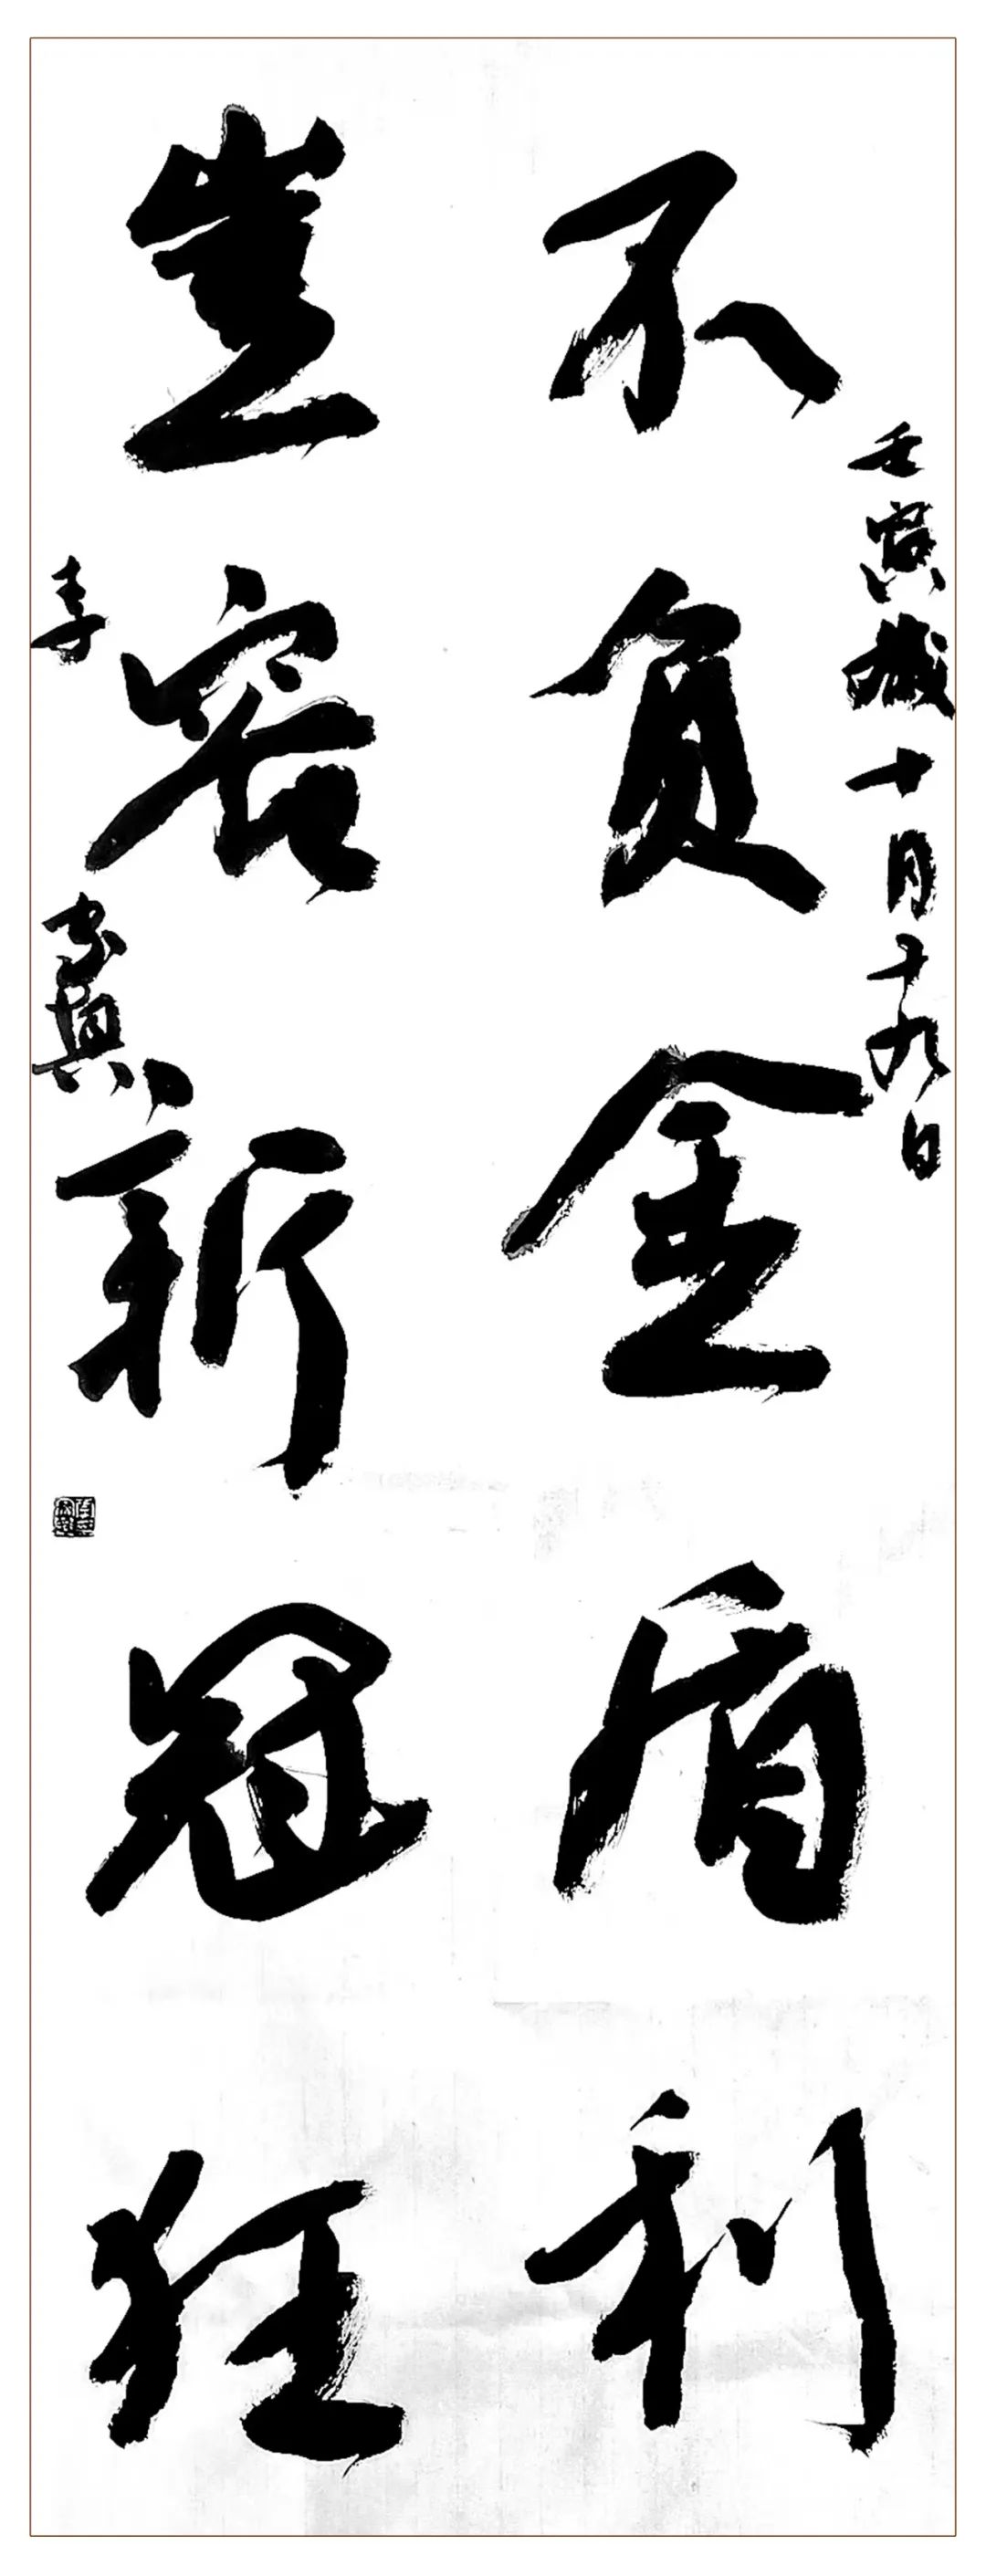 壬寅歲十月十九日
不負金盾利
豈容新冠狂
李家興